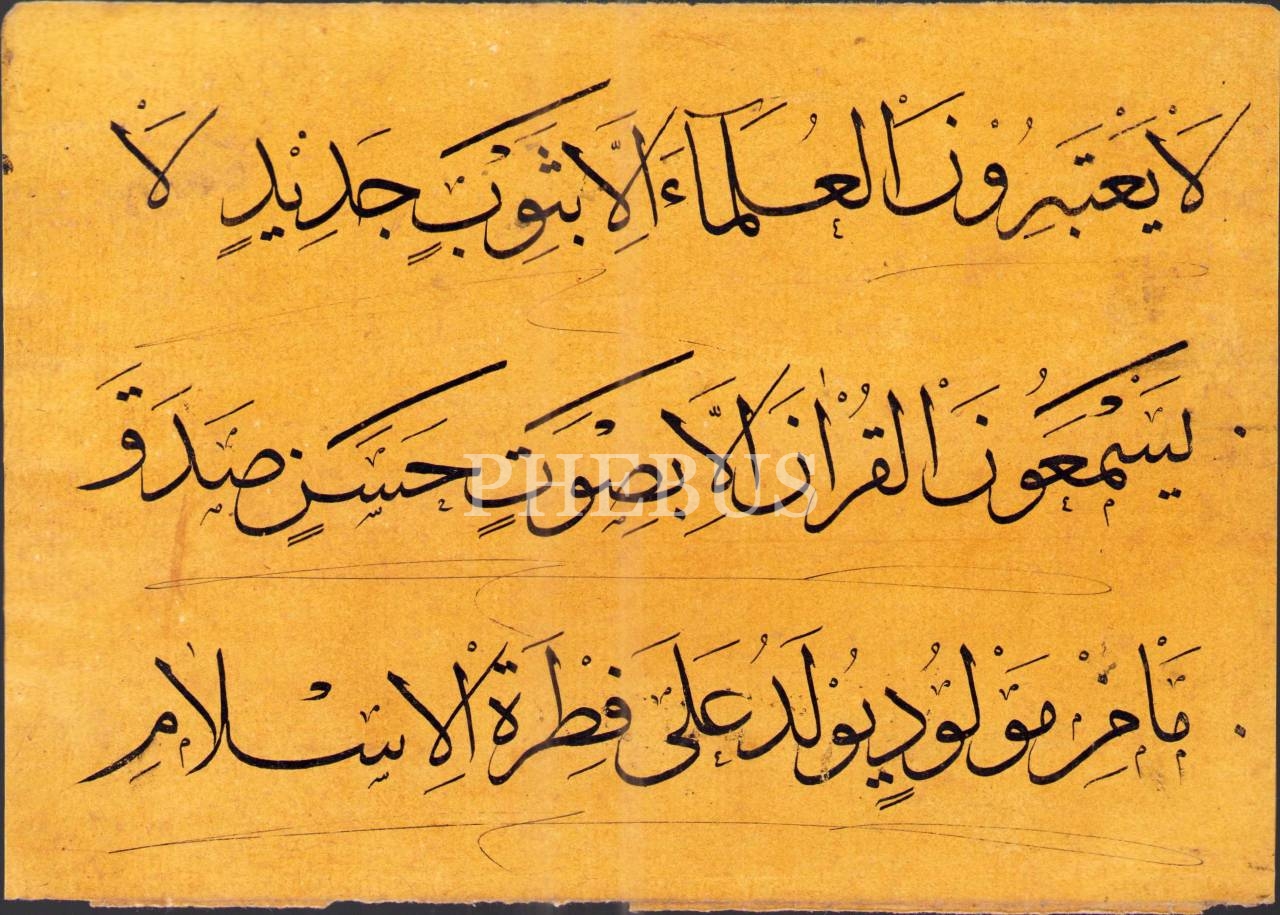 لَا يَعْتَبِرُوْنَ الْعُلَمَآءَ اِلَّا بِثَوْبٍ جَدِيْدٍ لَا
يَسْمَعُوْنَ الْقُرْاٰنَ اِلَّا بِصَوْتٍ حَسَنٍ صَدَقَ
PHEBUS
مَا مِنْ مَوْلُوْدٍ يُوْلَدُ عَلَى فِطْرَةِ الْاِسْلَامِ